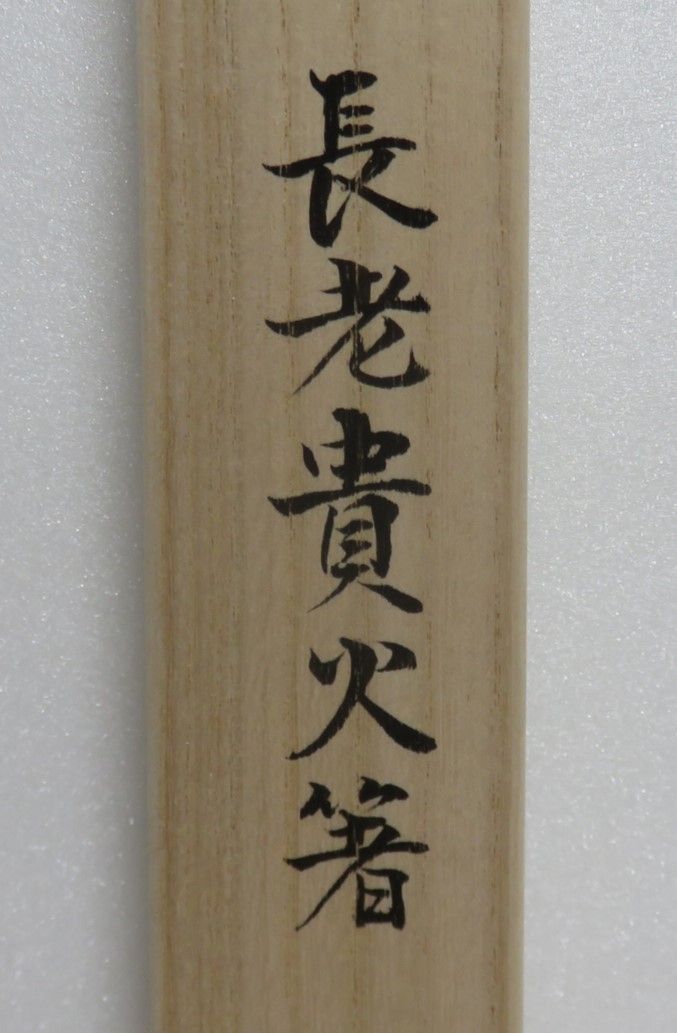 長老貴火箸